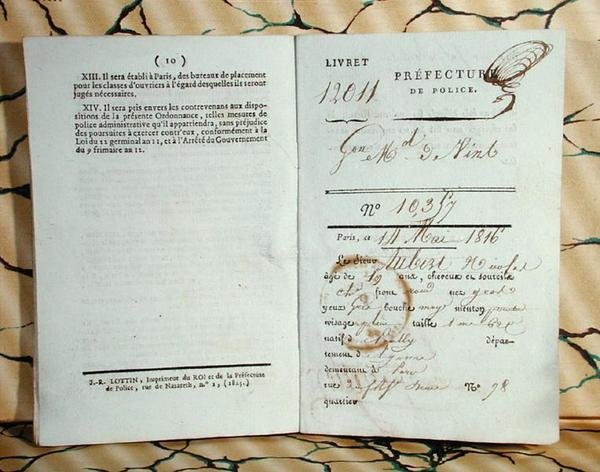 ( 10 )
XIII. Il sera établi à Paris, des bureaux de placement
pour les classes d'ouvriers à l'égard desquelles ils seront
jugés nécessaires.
XIV. Il sera pris envers les contrevenans aux dispo-
sitions de la présente Ordonnance, telles mesures de
police administrative qu'il appartiendra, sans préjudice
des poursuites à exercer contr'eux, conformément à la
Loi du 22 germinal an 11, et à l'Arrêté du Gouvernement
du 9 frimaire an 12.
J.-R. LOTTIN, Imprimeur du ROI et de la Préfecture
de Police, rue de Nazareth, n.° 2, (1815.)
LIVRET
12011
PRÉFECTURE
DE POLICE.
Gon Md De Vins
N° 10,357
Paris, ce 14 Mai 1816
Le sieur Nicolas
âge de 19 ans, cheveux et sourcils
front rond nez gros
yeux gris bouche moy menton
visage plein taille 1 m
natif de dépar-
tement de
demeurant à Paris
rue N° 98
quartier